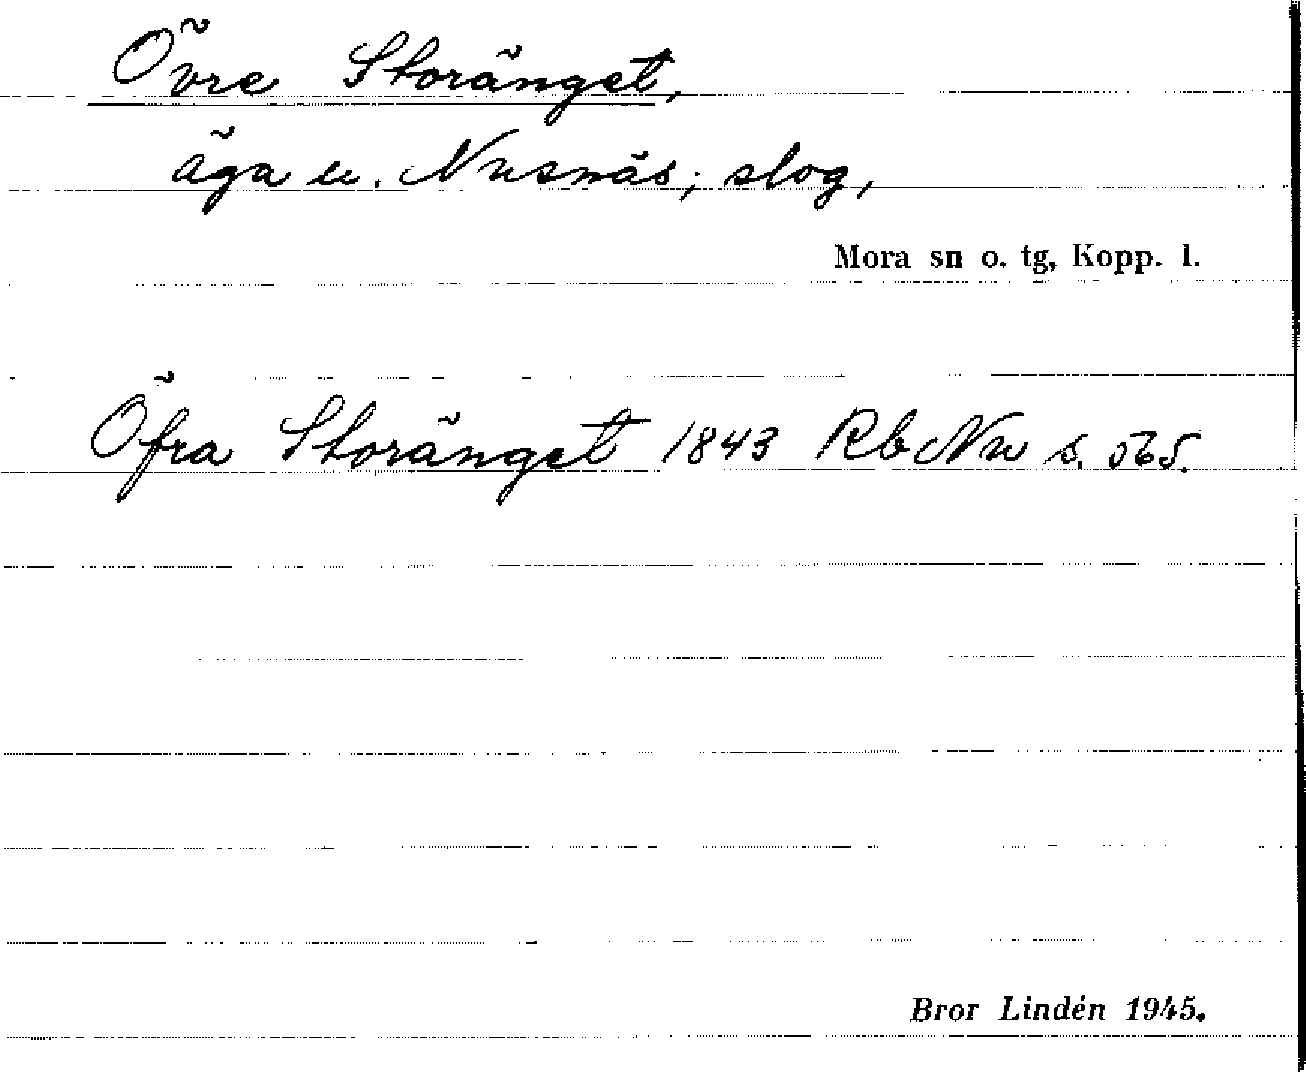 Övre Storänget,
äga u. Nusnäs; slog,
Mora sn o. tg, Kopp. l.
Öfra Storänget 1843 RbNu s. 565.
Bror Lindén 1945.